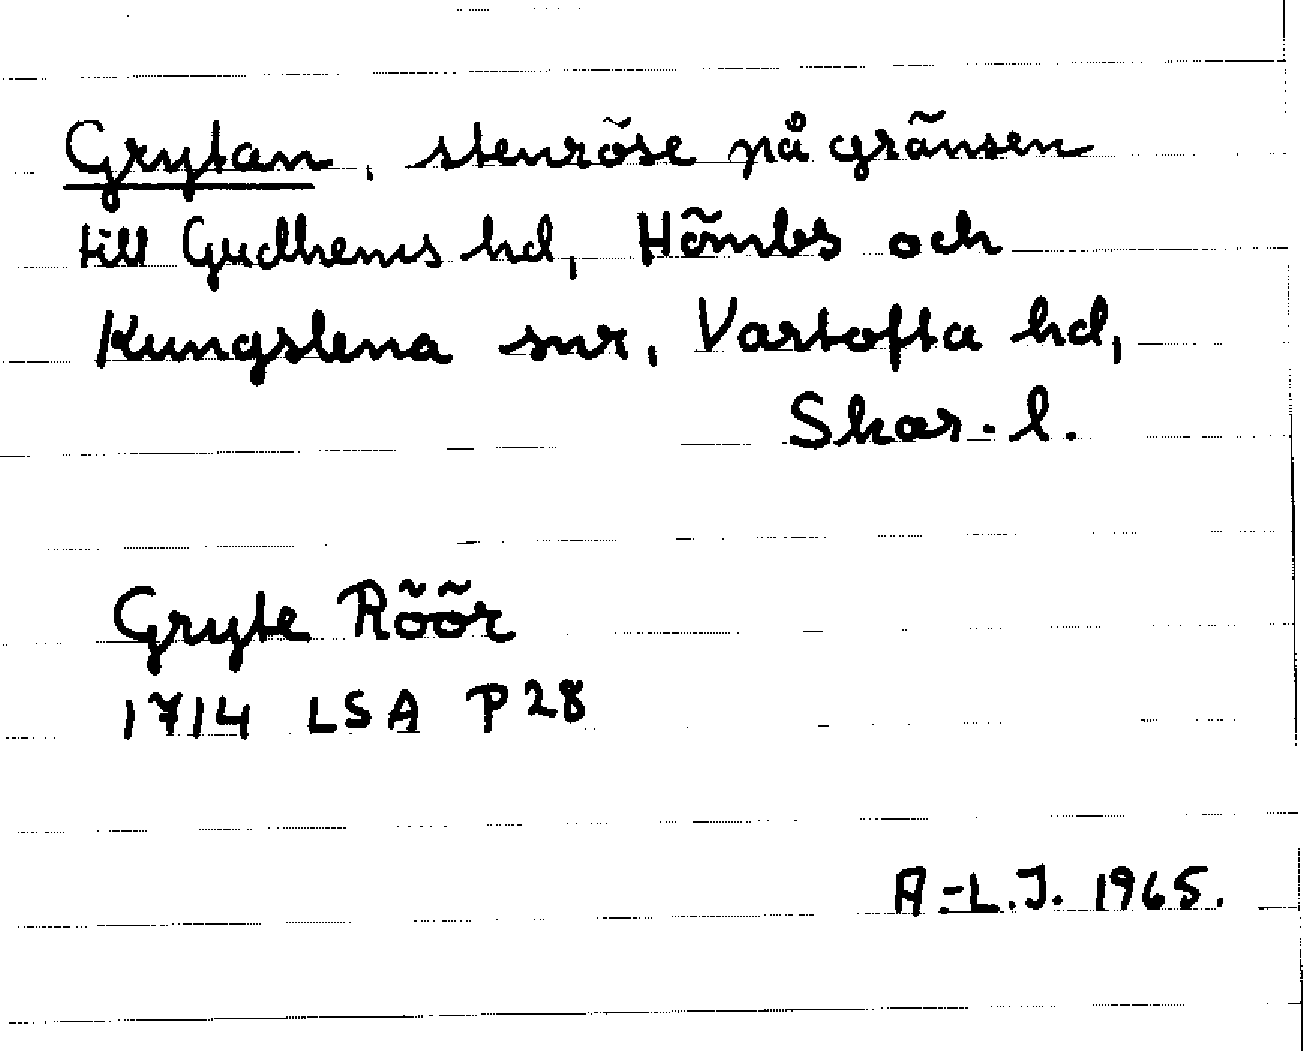 Grytan, stenröse på gränsen
till Gudhems hd, Hömbs och
Kungslena snr, Vartofta hd,
Skar. l.
Gryte Röör
1714 LSA P28
A.-L.J. 1965.